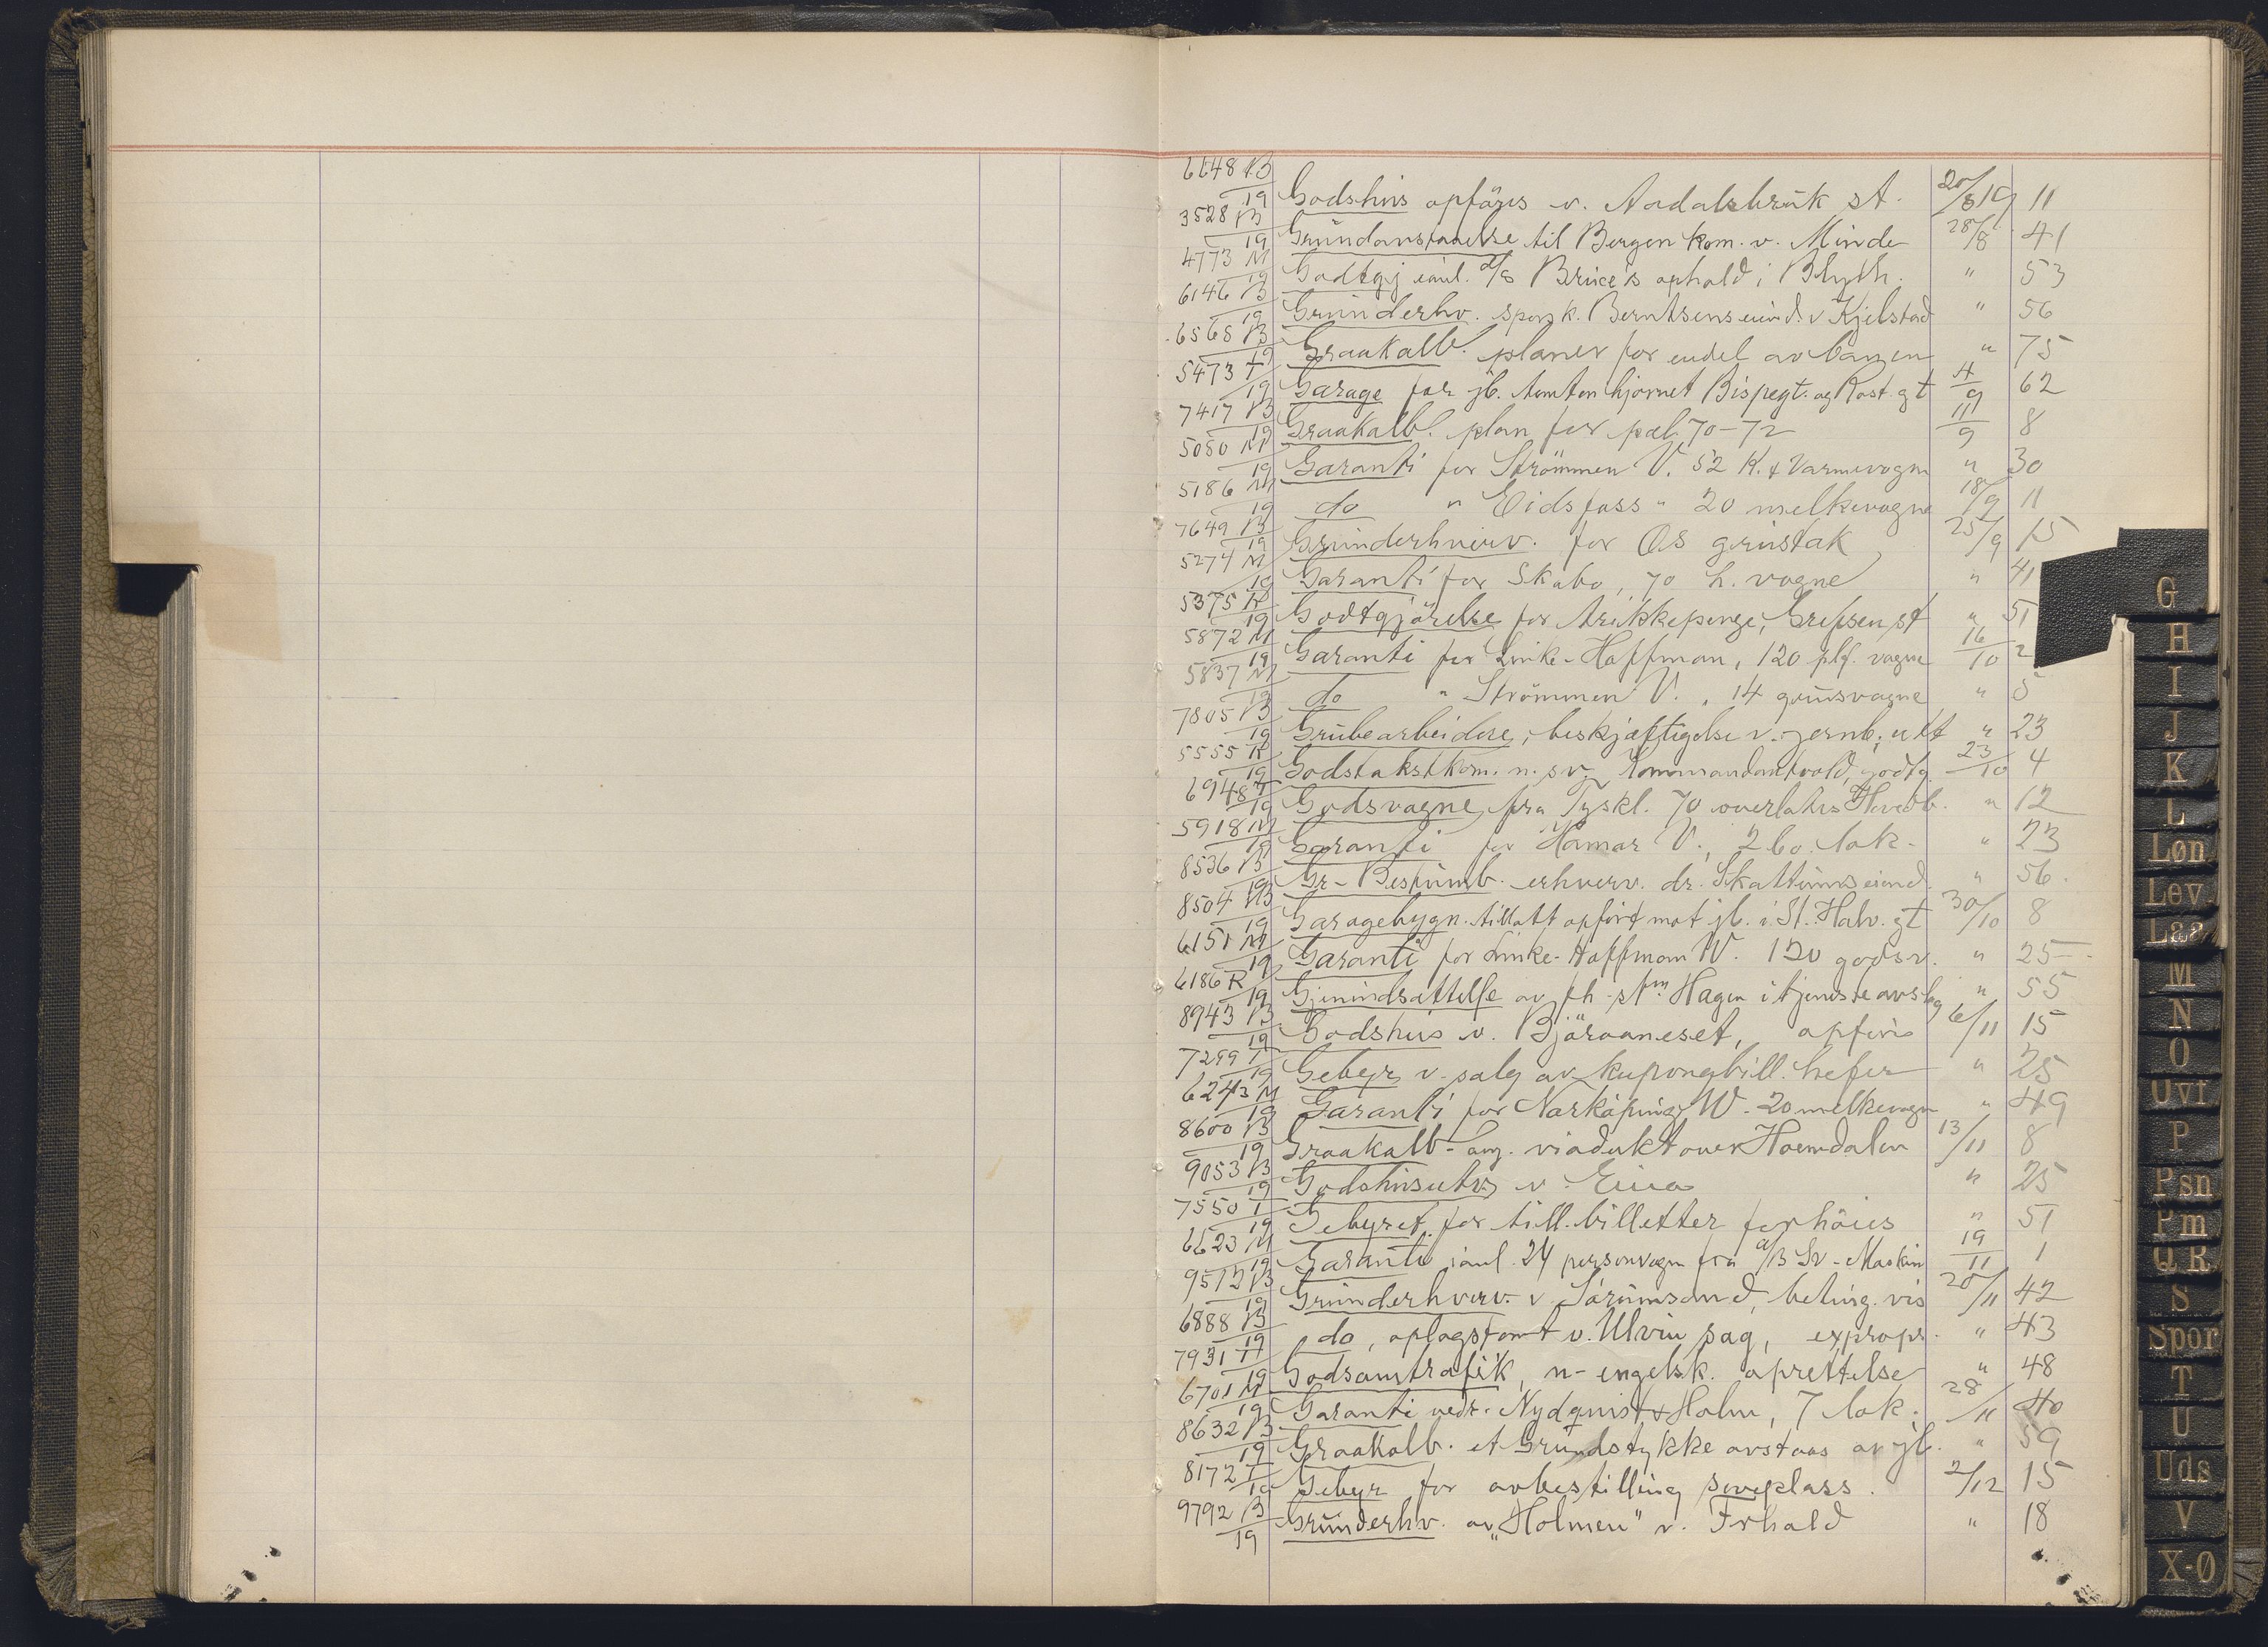 6148 B/19 Godshus opføres v. Aadalsbruk st. 20/8 19 11
3528 B/19 Grundavstaaelse til Bergen kom. v. Minde 28/8 41
4773 M/19 Godtgj. ophold i Blyth. " 53
6146 B/19 Grunderhv. Berntsens eiend. v Kjelstad " 56
6565 B/19 Graakalb. planer for endel av banen " 75
5473 T/19 Garage for jb. tomten hjørnet Bispegt. og Rost. gt 4/9 62
7417 B/19 Graakalb. plan for pæl 70-72 11/9 8
5080 M/19 Garanti for Strömmen V. 52 K. & Varmevogn " 30
5186 M/19 do " Eidsfoss " 20 melkevogne 18/9 11
7649 B/19 Grunderhverv. for Os grustak 25/9 15
5274 M/19 Garanti for Skabo, 70 h. vogne " 41
5375 R/19 Godtgjörelse for drikkepenge, Grefsen st " 51
5872 M/19 Garanti for Linke-Hoffman, 120 plf. vogne 16/10 2
5837 M/19 do " Strömmen V. , 14 grusvogne " 5
7805 B/19 Grubearbeidere, beskjæftigelse v. jernb. utt " 23
5555 R/19 Godstakstkom. n. sv. Kommandantvold, godtg. 23/10 4
6948 T/19 Godsvogne fra Tyskl. 70 overlates Hovedb. " 12
5918 M/19 Garanti for Hamar V., 2 bo. lok. " 23
8536 B/19 Gr- Bestumb. erhverv. dr. Skattums eiend. " 56.
8504 B/19 Garagebygn. tillatt opført mot jb. i St. Halv. gt 30/10 8
6151 M/19 Garanti for Linke-Hoffman W. 120 godsv. " 25
6186 R/19 Gjenindsættelse av fh. stm. Hagen i tjeneste avslag " 55
8943 B/19 Godshus v. Björaaneset, opføres 6/11 15
7299 T/19 Gebyr v. salg av kupongbill. hefter " 25
6243 M/19 Garanti for Norköping W. 20 melkevogn " 49
8600 B/19 Graakalb- ang. viadukt over Havndalen 13/11 8
9053 B/19 Godshusutv. v. Eina " 25
7550 T/19 Gebyret for till.billetter forhöies " 51
6623 M/19 Garanti iaul. 24 personvogn fra A/B Sv-Maskin 19/11 1
9512 B/19 Grunderhverv. v Sörumsand, beting. vis 20/11 42
6888 B/19 do, oplagstomt v. Ulvin sag, exprop. " 43
7931 T/19 Godsamtrafik, n- engelsk. oprettelse " 48
6701 M/19 Garanti vedr. Nydqvist & Holm, 7 lok. 28/11 40
8632 B/19 Graakalb. et Grundstykke avstaas av jb. " 59
8172 T/19 Gebyr for avbestilling soveplass. 2/12 15
9792 B/19 Grunderhv. av "Holmen" v. Frhald " 18
G
H
I
J
K
L
Løn
Lev
Laa
M
N
O
Ovf
P
Psn
Pm
Q R
S
Spor
T
U
Uds
V
X-Ø